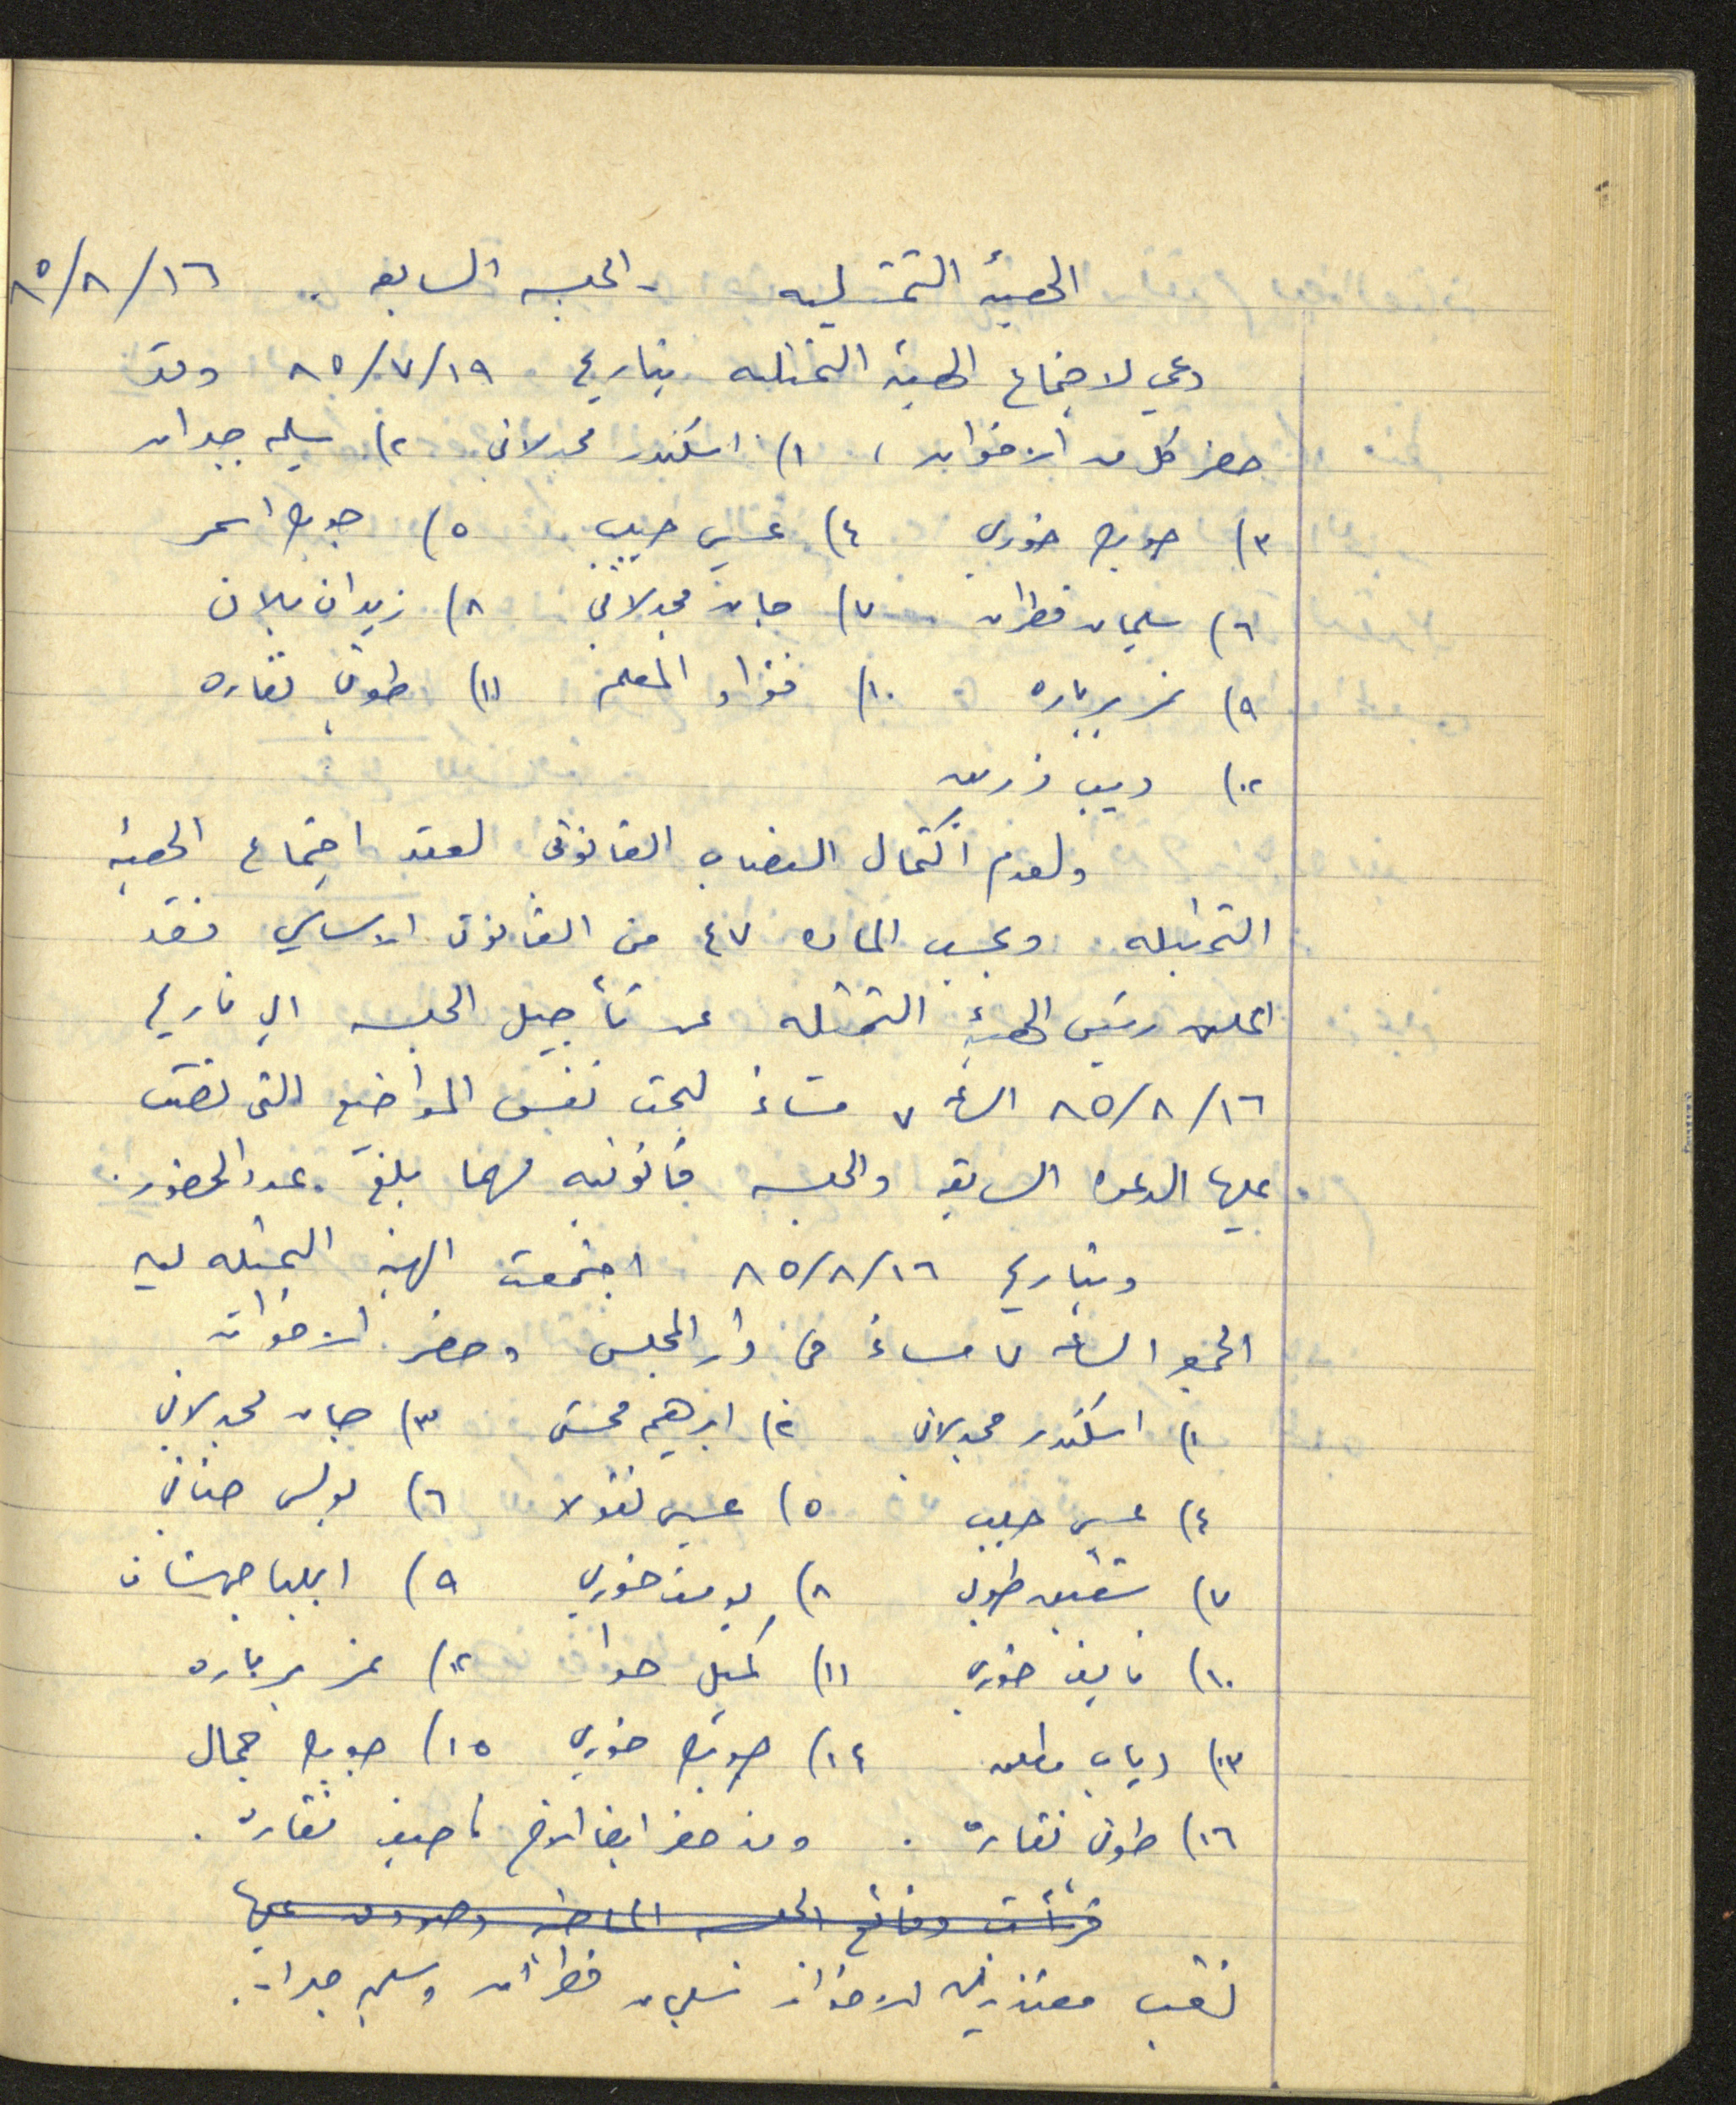 الهيئة التمثيليه - الجلسه السابعه . ١٦/٨/٨٥
دعي لاجتماع الهيئة التمثيليه بتاريخ ١٩/٧/٨٥ وقد
حضر كل من الاخوان ، ١) اسكندر مجدلاني ٢) سليم جبران
٣) جورج خوري ٤) عيسى حبيب ٥) جورج اسمر
٦) سليمان قطران ٧) جان مجدلاني ٨) زيدان بلان
٩) نمر برباره ١٠) فؤاد المعلم ١١) طوني نقاره
١٢) ديب زريق
ولعدم اكتمال النصاب القانوني لعقد اجتماع الهيئة
التمثيليه وبحسب الماده ٤٧ من القانون الاساسي فقد
اعلن رئيس الهيئة التمثيليه عن تأجيل الجلسه الى تاريخ
١٦/٨/٨٥ الساعة ٧ مساءً لبحث نفس المواضيع التي نصت
عليها الدعوه السابقه والجلسه قانونيه مهما بلغ عدد الحضور .
وبتاريخ ١٦/٨/٨٥ اجتمعت الهيئة التمثيليه ليه
الجمعه الساعه ٧ مساءً في دار المجلس وحضر الاخوان
١) اسكندر مجدلاني ٢) ابرهيم محشي ٣) جان مجدلاني
٤) عيسى حبيب ٥) عيسى نقولا ٦) بولس حناني
٧) شفيق طوبي ٨) يوسف خوري ٩) ايليا جهشان
١٠) نايف خوري ١١) كميل حوا ١٢) نمر برباره
١٣) دياب مطلق ١٤) جورج خوري ١٥) جورج جمال
١٦) طوني نقارة . وقد حضر ايضا الاخ ناصيف نقارة .
قرأت وقائع الجلسه الماضيه وصودق عليها
تغيب معتذرين الاخوان سليمان قطران وسليم جبران .